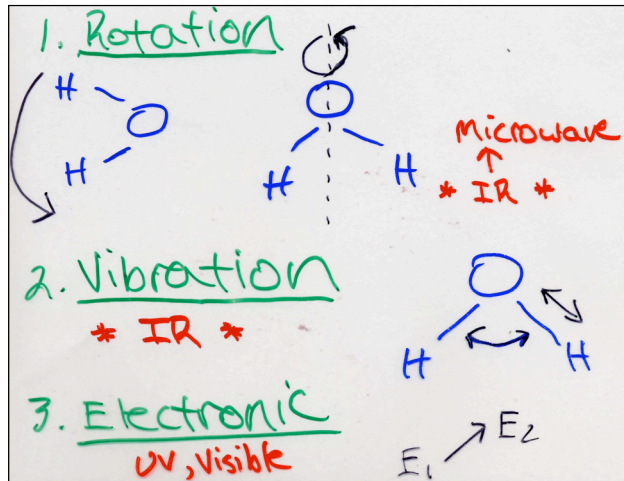 1. Rotation
H
O
H
O
H H
Microwave
* IR *
2. Vibration
* IR *
O
H H
3. Electronic
UV, Visible
E₁ E₂